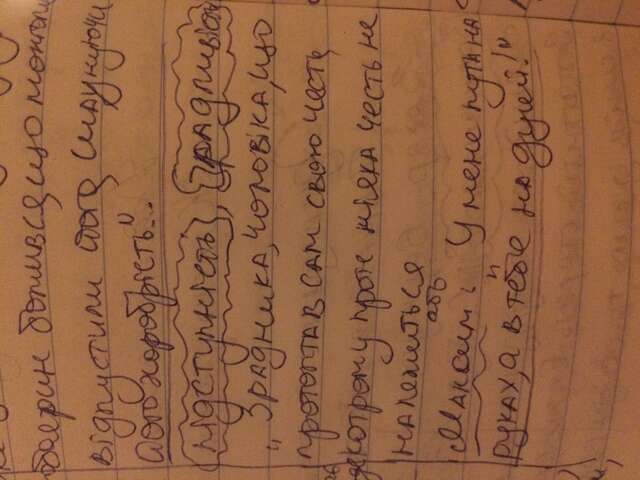 боярин божився, що монголи
відпустили його, шануючи
його хоробрість"...
Підступність, зрадливість
„Зрадника, чоловіка, що
протоптав сам свою честь,
котрому проте ніяка честь не
належиться
або
Максим: „У мене пута на
руках, а в тебе на душей!"